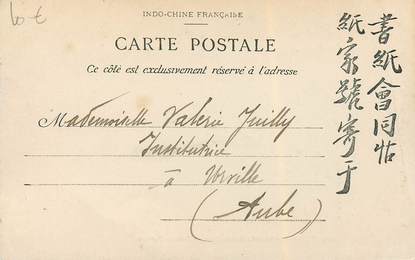 10 €
INDO-CHINE FRANÇAISE
CARTE POSTALE
Ce côté est exclusivement réservé à l'adresse
Mademoiselle Valerie Juilly
Institutrice
à Urville
(Aube)
書紙會同帖
紙家號寄于